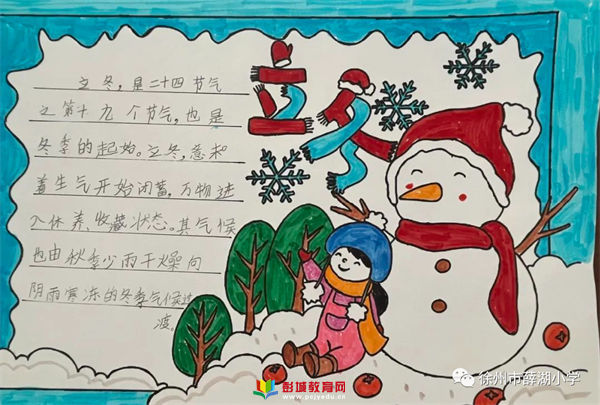 立冬
立冬，是二十四节气
之第十九个节气，也是
冬季的起始。立冬，意味
着生气开始闭蓄，万物进
入休养、收藏状态。其气候
也由秋季少雨干燥向
阴雨寒冻的冬季气候过
渡。
彭城教育网
www.pcjyedu.cn
徐州市薛湖小学